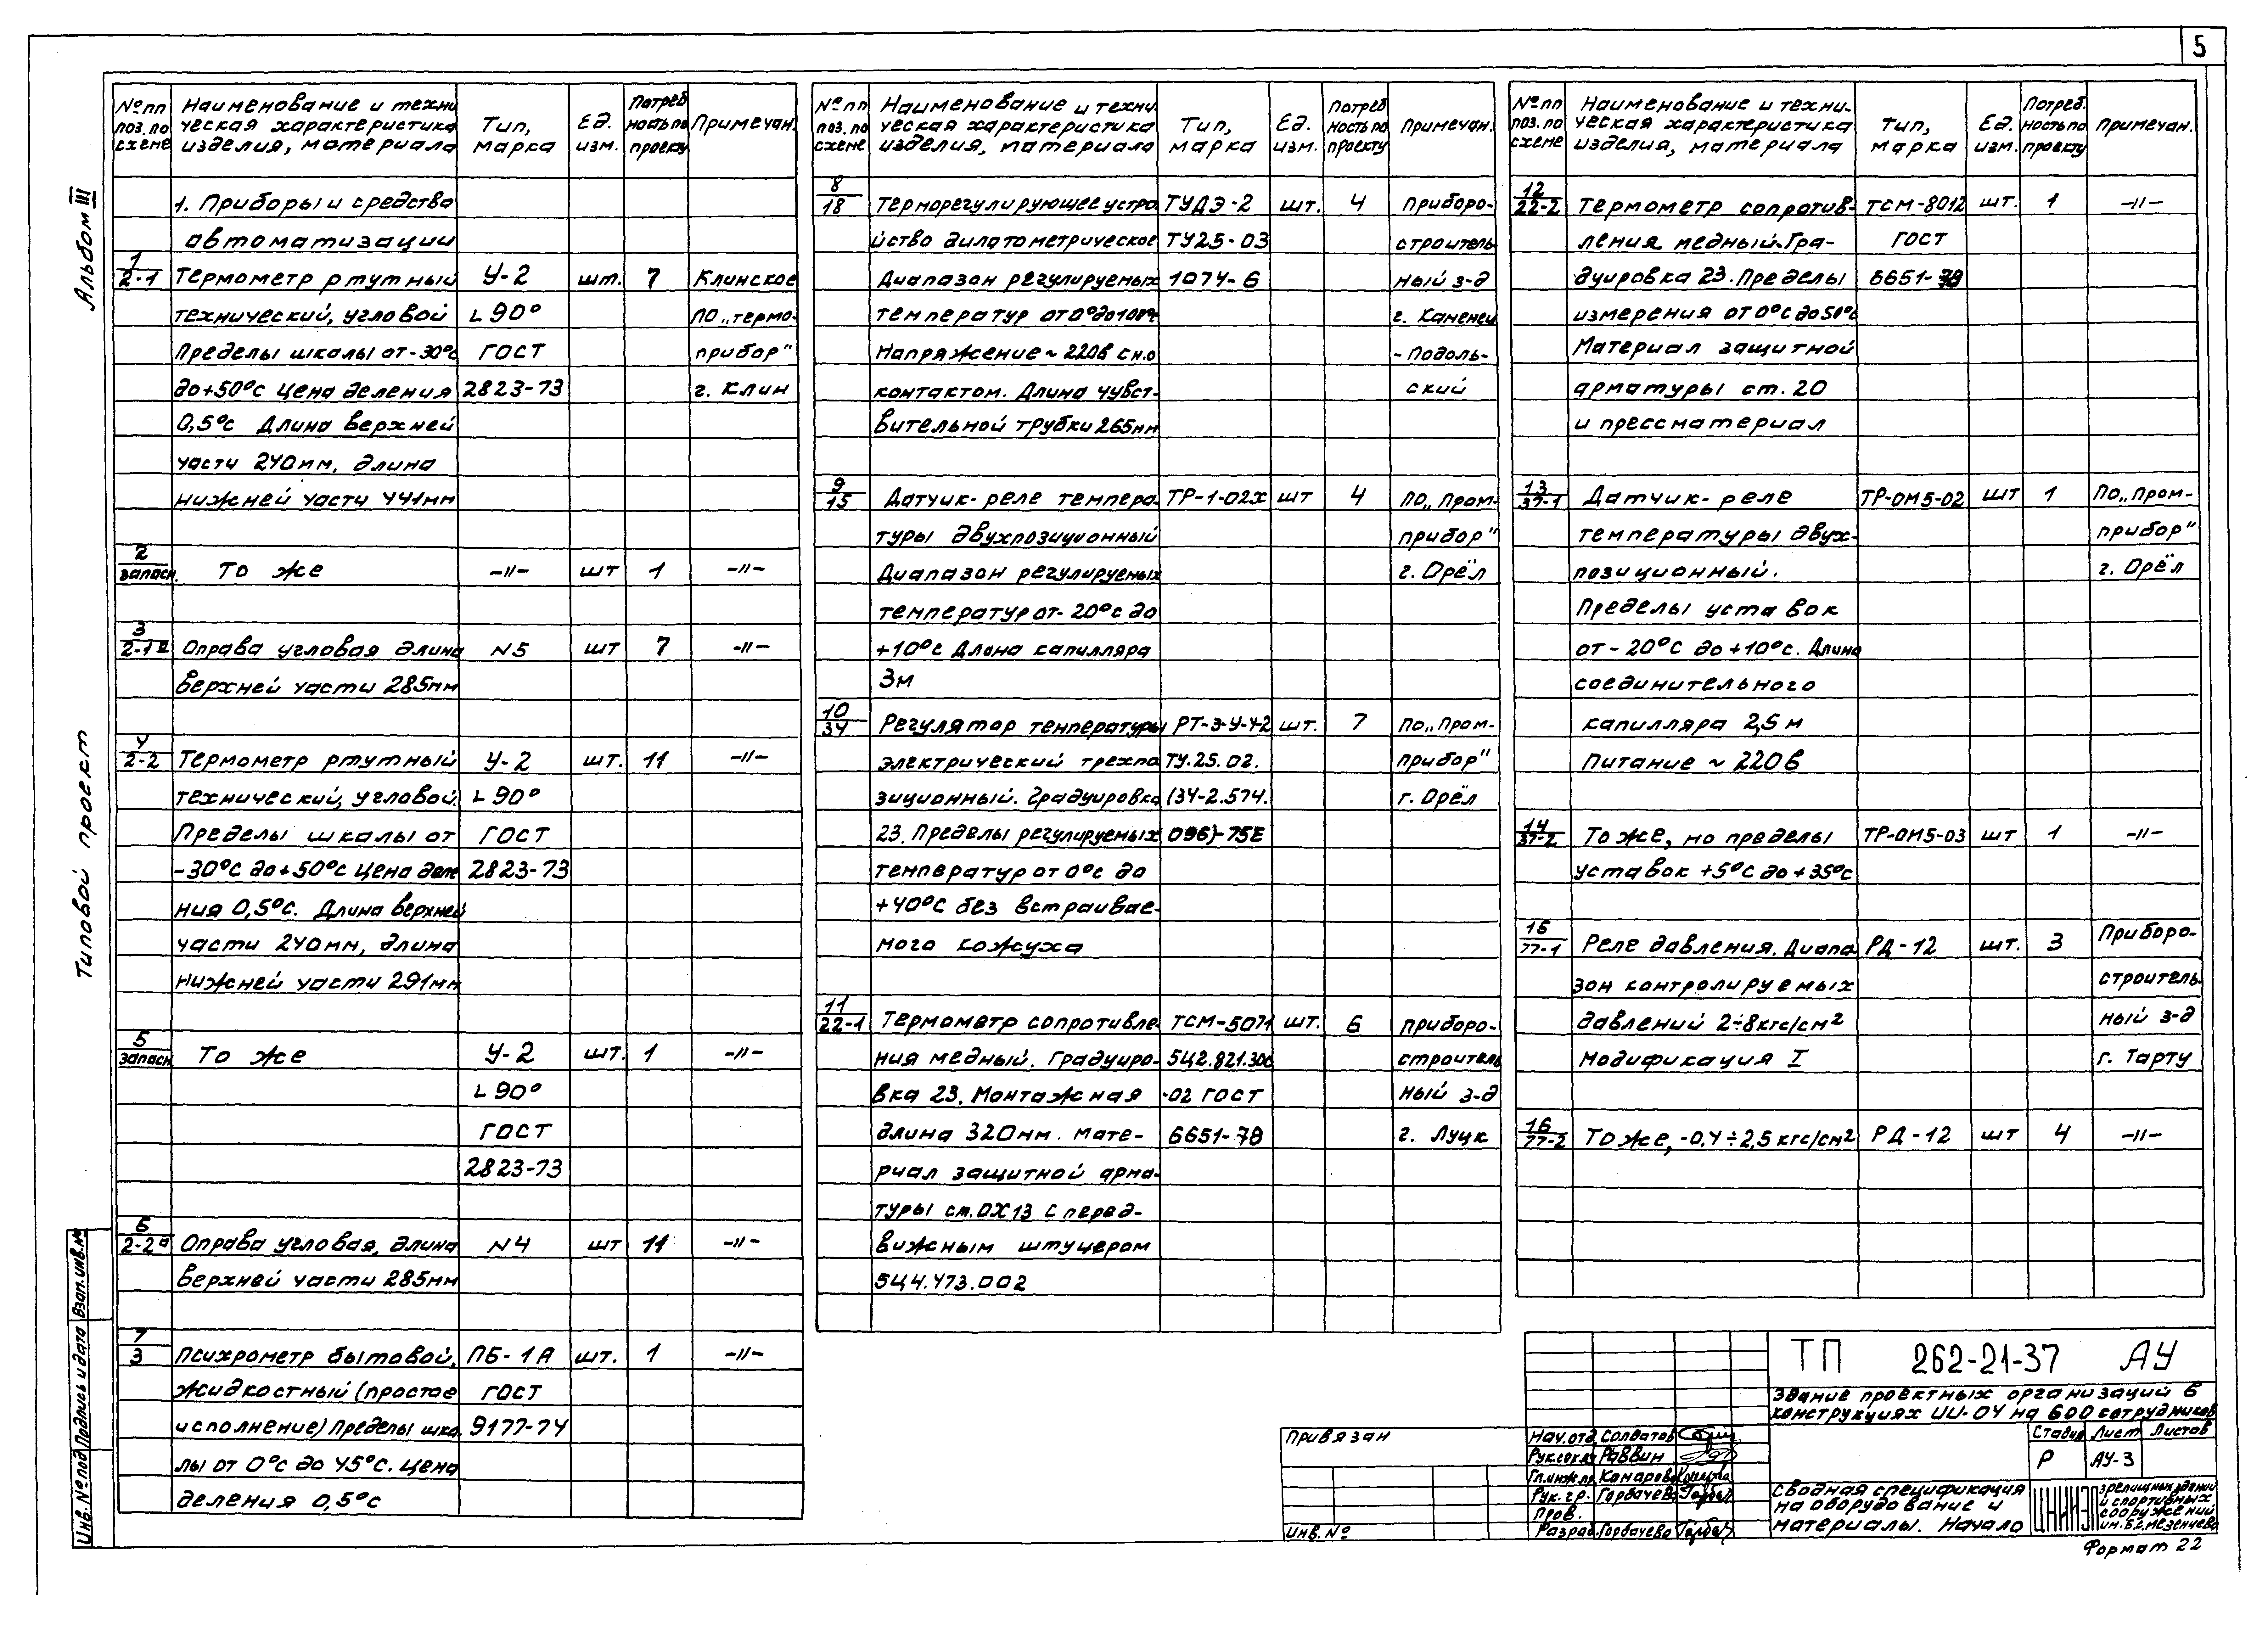 5
Альбом III
Типовой проект
Инв. № под Подпись и дата Взам. инв. №
№ пп поз. по схеме
Наименование и техническая характеристика изделия, материала
Тип, марка
Ед. изм.
Потребность по проекту
Примечан.
1. Приборы и средства
автоматизации
1/2-1 Термометр ртутный У-2 шт. 7 Клинское
технический, угловой L 90° ПО „термо-
Пределы шкалы от -30°с ГОСТ прибор"
до +50°с Цена деления 2823-73 г. Клин
0,5°с Длина верхней
части 240мм, длина
нижней части 441мм
2/запасн. То же -"- шт 1 -"-
3/2-1а Оправа угловая длина N5 шт 7 -"-
верхней части 285мм
4/2-2 Термометр ртутный У-2 шт. 11 -"-
технический, угловой. L 90°
Пределы шкалы от ГОСТ
-30°С до +50°С Цена деле 2823-73
ния 0,5°С. Длина верхней
части 240мм, длина
нижней части 291мм
5/запасн То же У-2 шт. 1 -"-
L 90°
ГОСТ
2823-73
6/2-2а Оправа угловая, длина N4 шт 11 -"-
верхней части 285мм
7/3 Психрометр бытовой, ПБ-1А шт. 1 -"-
жидкостный (простое ГОСТ
исполнение) Пределы шка 9177-74
лы от 0°С до 45°С. Цена
деления 0,5°с
№ пп поз. по схеме
Наименование и техническая характеристика изделия, материала
Тип, марка
Ед. изм.
Потребность по проекту
Примечан.
8/18 Терморегулирующее устро ТУДЭ-2 шт. 4 Приборо-
йство дилатометрическое ТУ25-03 строитель
Диапазон регулируемых 1074-6 ный з-д
температур от 0° до 100°с г. Каменец
Напряжение ~ 220в с н.о - Подоль-
контактом. Длина чувст- ский
вительной трубки 265мм
9/15 Датчик-реле темпера ТР-1-02Х шт 4 ПО „Пром-
туры двухпозиционный прибор"
Диапазон регулируемых г. Орёл
температур от -20°с до
+10°с Длина капилляра
3м
10/34 Регулятор температуры РТ-3-У-42 шт. 7 ПО „Пром-
электрический трехпо ТУ.25.02. прибор"
зиционный. Градуировка (34-2.574. г. Орёл
23. Пределы регулируемых 096)-75Е
температур от 0°с до
+40°С без встраивае-
мого кожуха
11/22-1 Термометр сопротивле ТСМ-5071 шт. 6 приборо-
ния медный. Градуиро- 5Ц2.821.300 строитель
вка 23. Монтажная -02 ГОСТ ный з-д
длина 320мм. Мате- 6651-78 г. Луцк
риал защитной арма-
туры ст. 0Х13 с перед-
вижным штуцером
5Ц4.473.002
№ пп поз. по схеме
Наименование и техни-ческая характеристика изделия, материала
Тип, марка
Ед. изм.
Потреб. ность по проекту
Примечан.
12/22-2 Термометр сопротив- ТСМ-8012 шт. 1 -"-
ления медный. Гра- ГОСТ
дуировка 23. Пределы 6651-78
измерения от 0°с до 50°с
Материал защитной
арматуры ст. 20
и прессматериал
13/37-1 Датчик-реле ТР-ОМ5-02 шт 1 ПО „Пром-
температуры двух- прибор"
позиционный. г. Орёл
Пределы уставок
от -20°С до +10°С. Длина
соединительного
капилляра 2,5 м
Питание ~ 220в
14/37-2 То же, но пределы ТР-ОМ5-03 шт 1 -"-
уставок +5°С до +35°с
15/77-1 Реле давления. Диапа РД-12 шт. 3 Приборо-
зон контролируемых строитель-
давлений 2÷8кгс/см² ный з-д
Модификация I г. Тарту
16/77-2 То же, -0,4÷2,5 кгс/см² РД-12 шт 4 -"-
Привязан
Инв. №
Нач. отд Солдатов
Рук. сект Раввин
Гл. инж. пр Комарова
Рук. гр. Горбачева
Пров.
Разраб. Горбачева
ТП 262-21-37 АУ
Здание проектных организаций в
конструкциях ИИ-04 на 600 сотрудников
Стадия Лист Листов
Р АУ-3
Сводная спецификация
на оборудование и
материалы. Начало
ЦНИИЭП
зрелищных зданий
и спортивных
сооружений
им. Б.С. Мезенцева
Формат 22